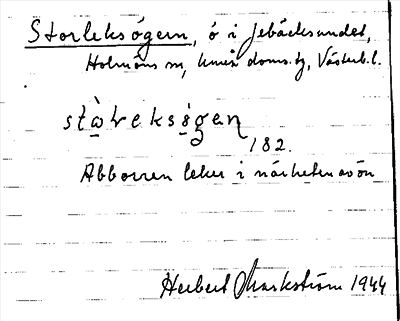 Storleksögern, ö i Jebäcksundet,
Holmöns sn, Umeå doms.tg, Västerb.l.
182.
Abborren leker i närheten av ön
Herbert Markström 1944